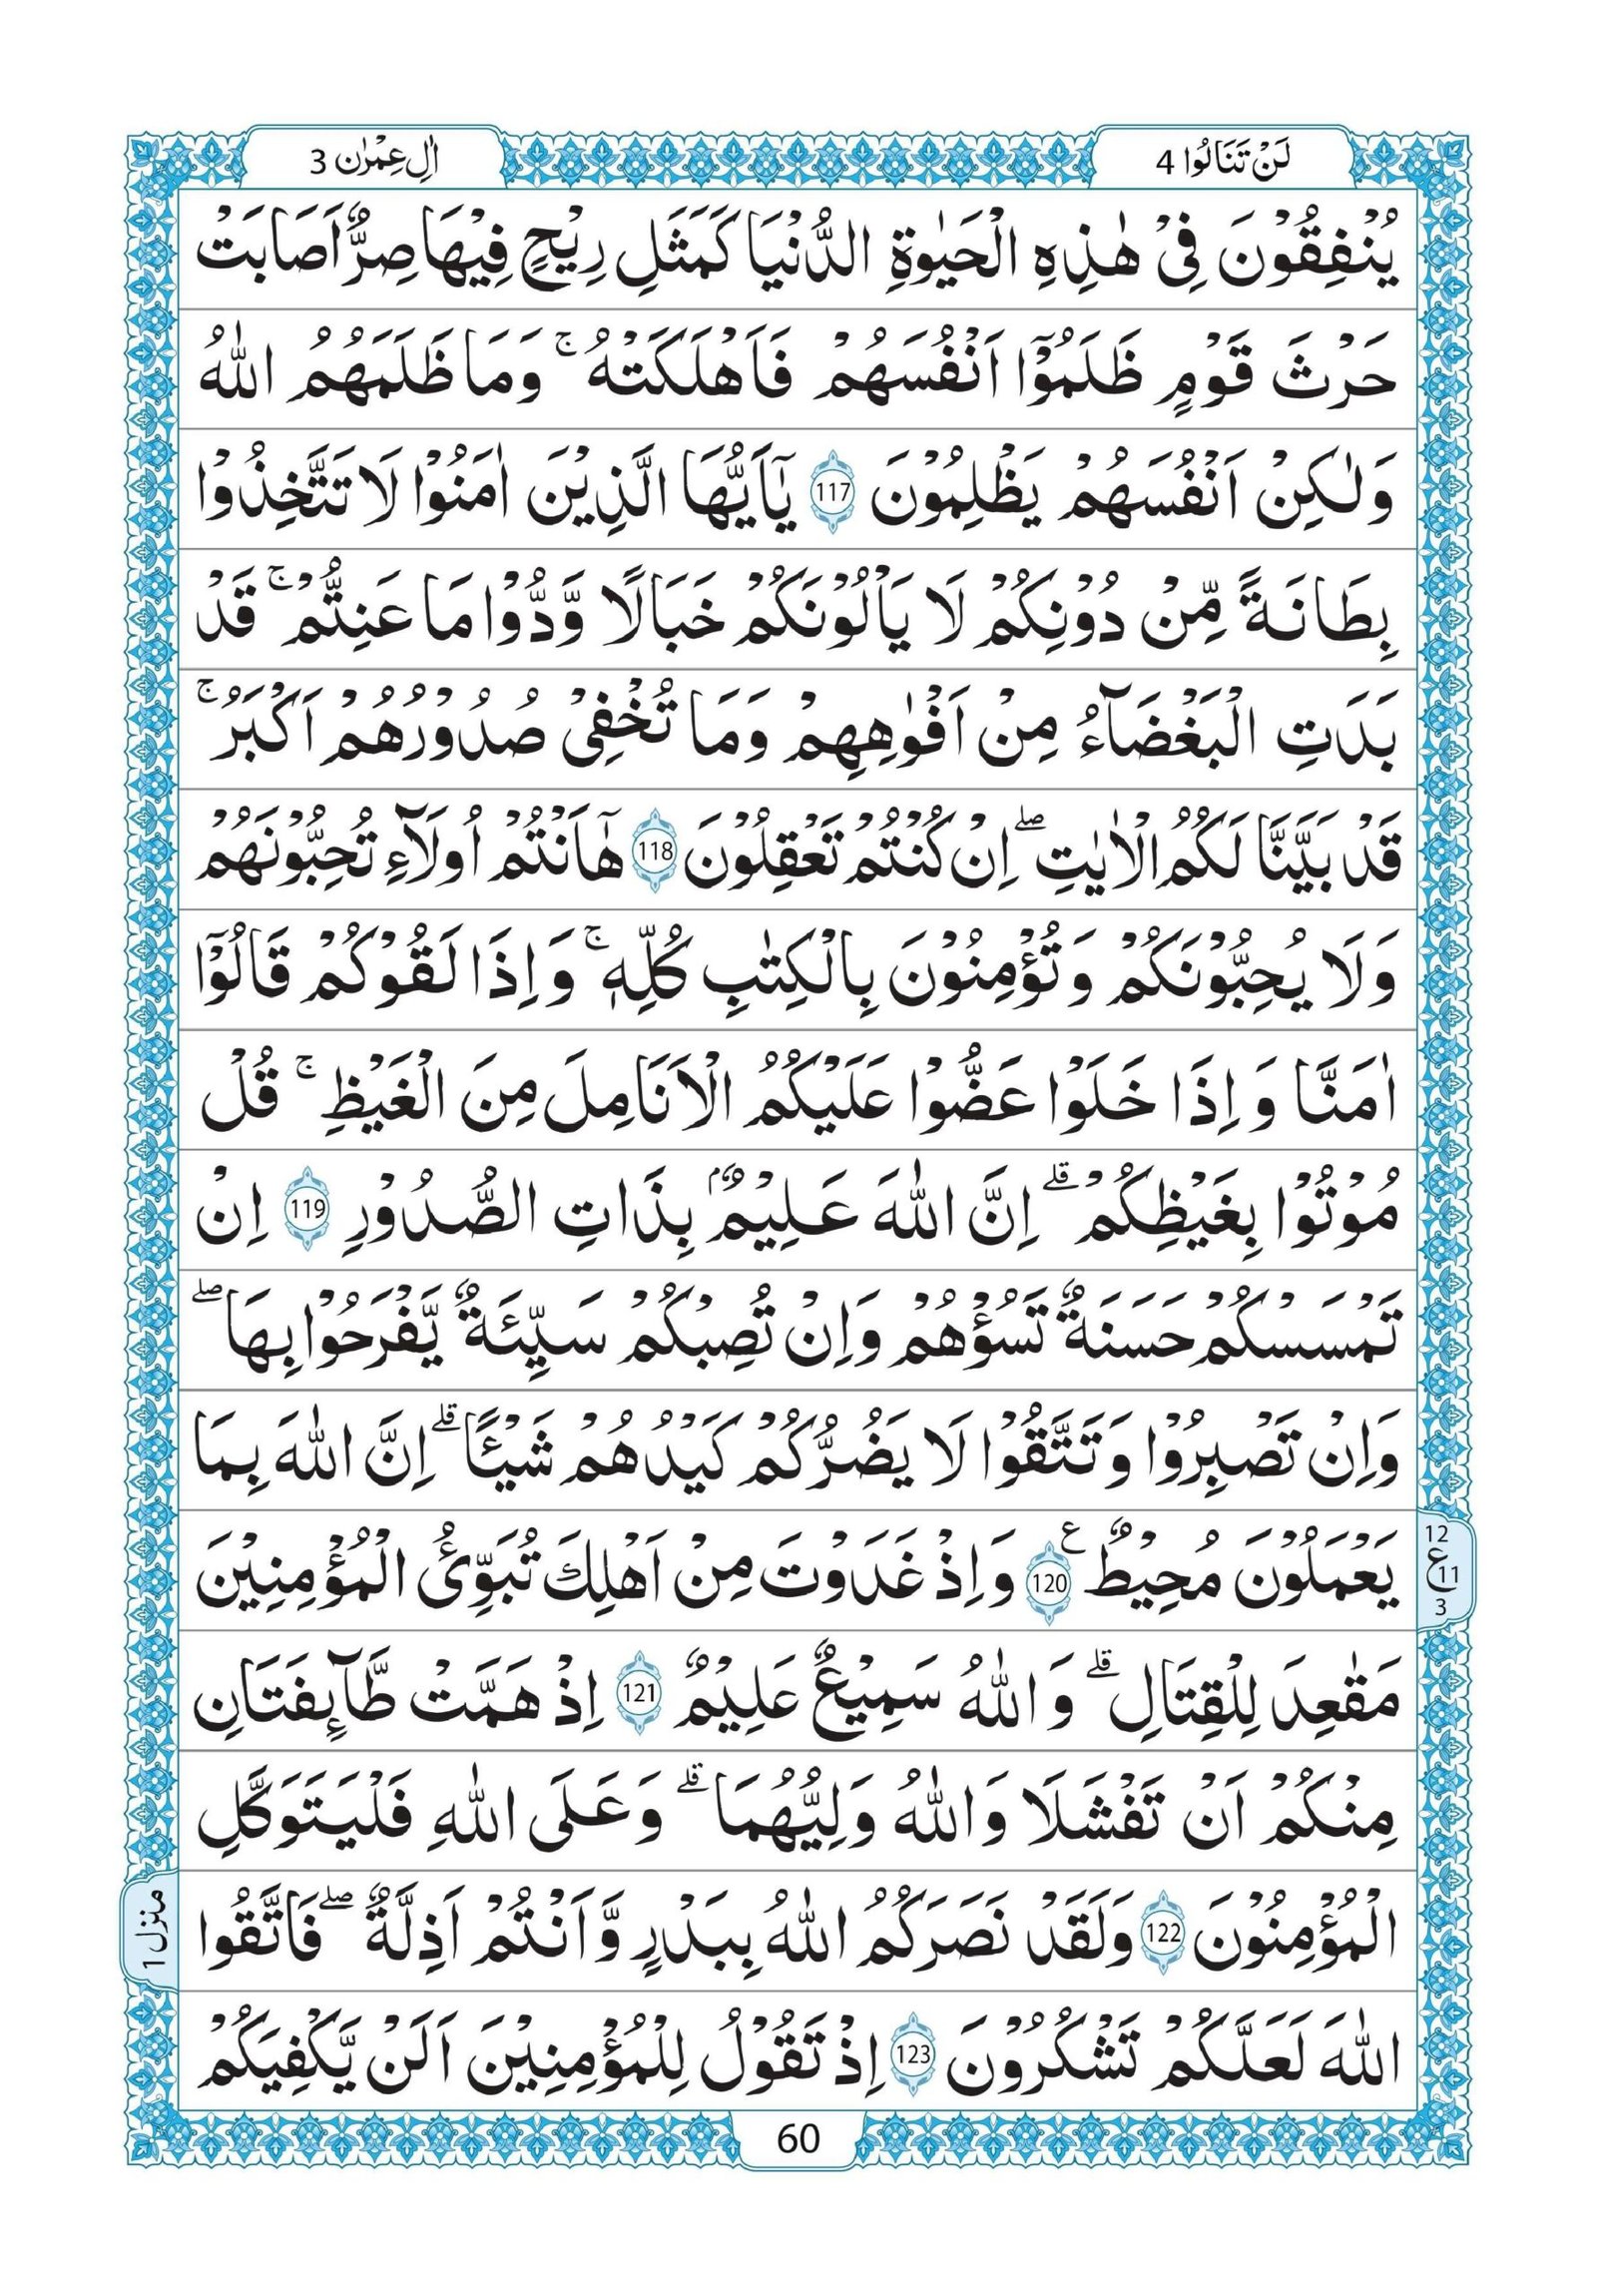 لَنْ تَنَالُوا 4
اٰلِ عِمْرٰن 3
يُنْفِقُوْنَ فِىْ هٰذِهِ الْحَيٰوةِ الدُّنْيَا كَمَثَلِ رِيْحٍ فِيْهَا صِرٌّ اَصَابَتْ
حَرْثَ قَوْمٍ ظَلَمُوْۤا اَنْفُسَهُمْ فَاَهْلَكَتْهُ ۚ وَمَا ظَلَمَهُمُ اللّٰهُ
وَلٰكِنْ اَنْفُسَهُمْ يَظْلِمُوْنَ 117 يٰۤاَيُّهَا الَّذِيْنَ اٰمَنُوْا لَا تَتَّخِذُوْا
بِطَانَةً مِّنْ دُوْنِكُمْ لَا يَاْلُوْنَكُمْ خَبَالًا وَّدُّوْا مَا عَنِتُّمْ ۚ قَدْ
بَدَتِ الْبَغْضَآءُ مِنْ اَفْوٰهِهِمْ وَمَا تُخْفِىْ صُدُوْرُهُمْ اَكْبَرُ ۚ
قَدْ بَيَّنَّا لَكُمُ الْاٰيٰتِ ۖ اِنْ كُنْتُمْ تَعْقِلُوْنَ 118 هٰۤاَنْتُمْ اُولَآءِ تُحِبُّوْنَهُمْ
وَلَا يُحِبُّوْنَكُمْ وَتُؤْمِنُوْنَ بِالْكِتٰبِ كُلِّهٖ ۚ وَاِذَا لَقُوْكُمْ قَالُوْۤا
اٰمَنَّا وَاِذَا خَلَوْا عَضُّوْا عَلَيْكُمُ الْاَنَامِلَ مِنَ الْغَيْظِ ۚ قُلْ
مُوْتُوْا بِغَيْظِكُمْ ۗ اِنَّ اللّٰهَ عَلِيْمٌۢ بِذَاتِ الصُّدُوْرِ 119 اِنْ
تَمْسَسْكُمْ حَسَنَةٌ تَسُؤْهُمْ وَاِنْ تُصِبْكُمْ سَيِّئَةٌ يَّفْرَحُوْا بِهَا ۖ
وَاِنْ تَصْبِرُوْا وَتَتَّقُوْا لَا يَضُرُّكُمْ كَيْدُهُمْ شَيْـًٔا ۗ اِنَّ اللّٰهَ بِمَا
يَعْمَلُوْنَ مُحِيْطٌ 120 ع وَاِذْ غَدَوْتَ مِنْ اَهْلِكَ تُبَوِّئُ الْمُؤْمِنِيْنَ
12
ع 11
3
مَقٰعِدَ لِلْقِتَالِ ۗ وَاللّٰهُ سَمِيْعٌ عَلِيْمٌ 121 اِذْ هَمَّتْ طَّآئِفَتَانِ
مِنْكُمْ اَنْ تَفْشَلَا وَاللّٰهُ وَلِيُّهُمَا ۗ وَعَلَى اللّٰهِ فَلْيَتَوَكَّلِ
الْمُؤْمِنُوْنَ 122 وَلَقَدْ نَصَرَكُمُ اللّٰهُ بِبَدْرٍ وَّاَنْتُمْ اَذِلَّةٌ ۖ فَاتَّقُوا
منزل 1
اللّٰهَ لَعَلَّكُمْ تَشْكُرُوْنَ 123 اِذْ تَقُوْلُ لِلْمُؤْمِنِيْنَ اَلَنْ يَّكْفِيَكُمْ
60